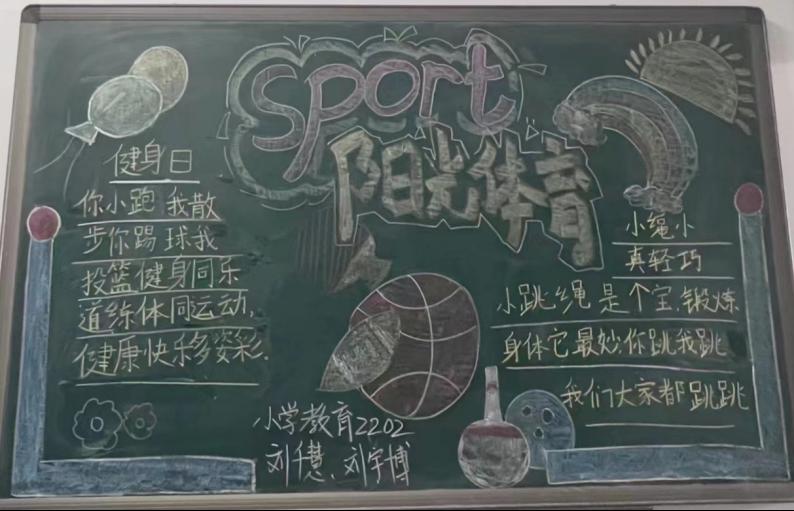 sport
阳光体育
健身日
你小跑 我散
步你踢 球我
投篮健身同乐
道练体同运动,
健康快乐多姿彩.
小绳小
真轻巧
小跳绳 是个宝,锻炼
身体它最妙你跳我跳
我们大家都跳跳
小学教育2202
刘千慧、刘宇博